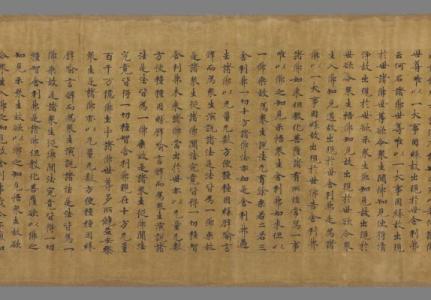 世尊唯以一大事因緣故出現於世舍利弗
云何名諸佛世尊唯以一大事因緣故出現
於世諸佛世尊欲令衆生開佛知見使得清
淨故出現於世欲示衆生佛知見故出現於
世欲令衆生悟佛知見故出現於世欲令衆
生入佛知見道故出現於世舍利弗是為諸
佛以一大事因緣故出現於世佛告舍利弗
諸佛如來但教化菩薩諸有所作常為一事
唯以佛之知見示悟衆生舍利弗如來但以
一佛乘故為衆生說法无有餘乘若二若三
舍利弗一切十方諸佛法亦如是舍利弗過
去諸佛以无量无數方便種種因緣譬喻言
辭而為衆生演說諸法是法皆為一佛乘故
是諸衆生從諸佛聞法究竟皆得一切種智
舍利弗未來諸佛當出於世亦以无量无數
方便種種因緣譬喻言辭而為衆生演說諸
法是法皆為一佛乘故是諸衆生從佛聞法
究竟皆得一切種智舍利弗現在十方无量
百千万億佛土中諸佛世尊多所饒益安樂
衆生是諸佛亦以无量无數方便種種因緣
譬喻言辭而為衆生演說諸法是法皆為一
佛乘故是諸衆生從佛聞法究竟皆得一切
種智舍利弗是諸佛但教化菩薩欲以佛之
知見示衆生故欲以佛之知見悟衆生故欲
令衆生入佛之知見故舍利弗我今亦復如